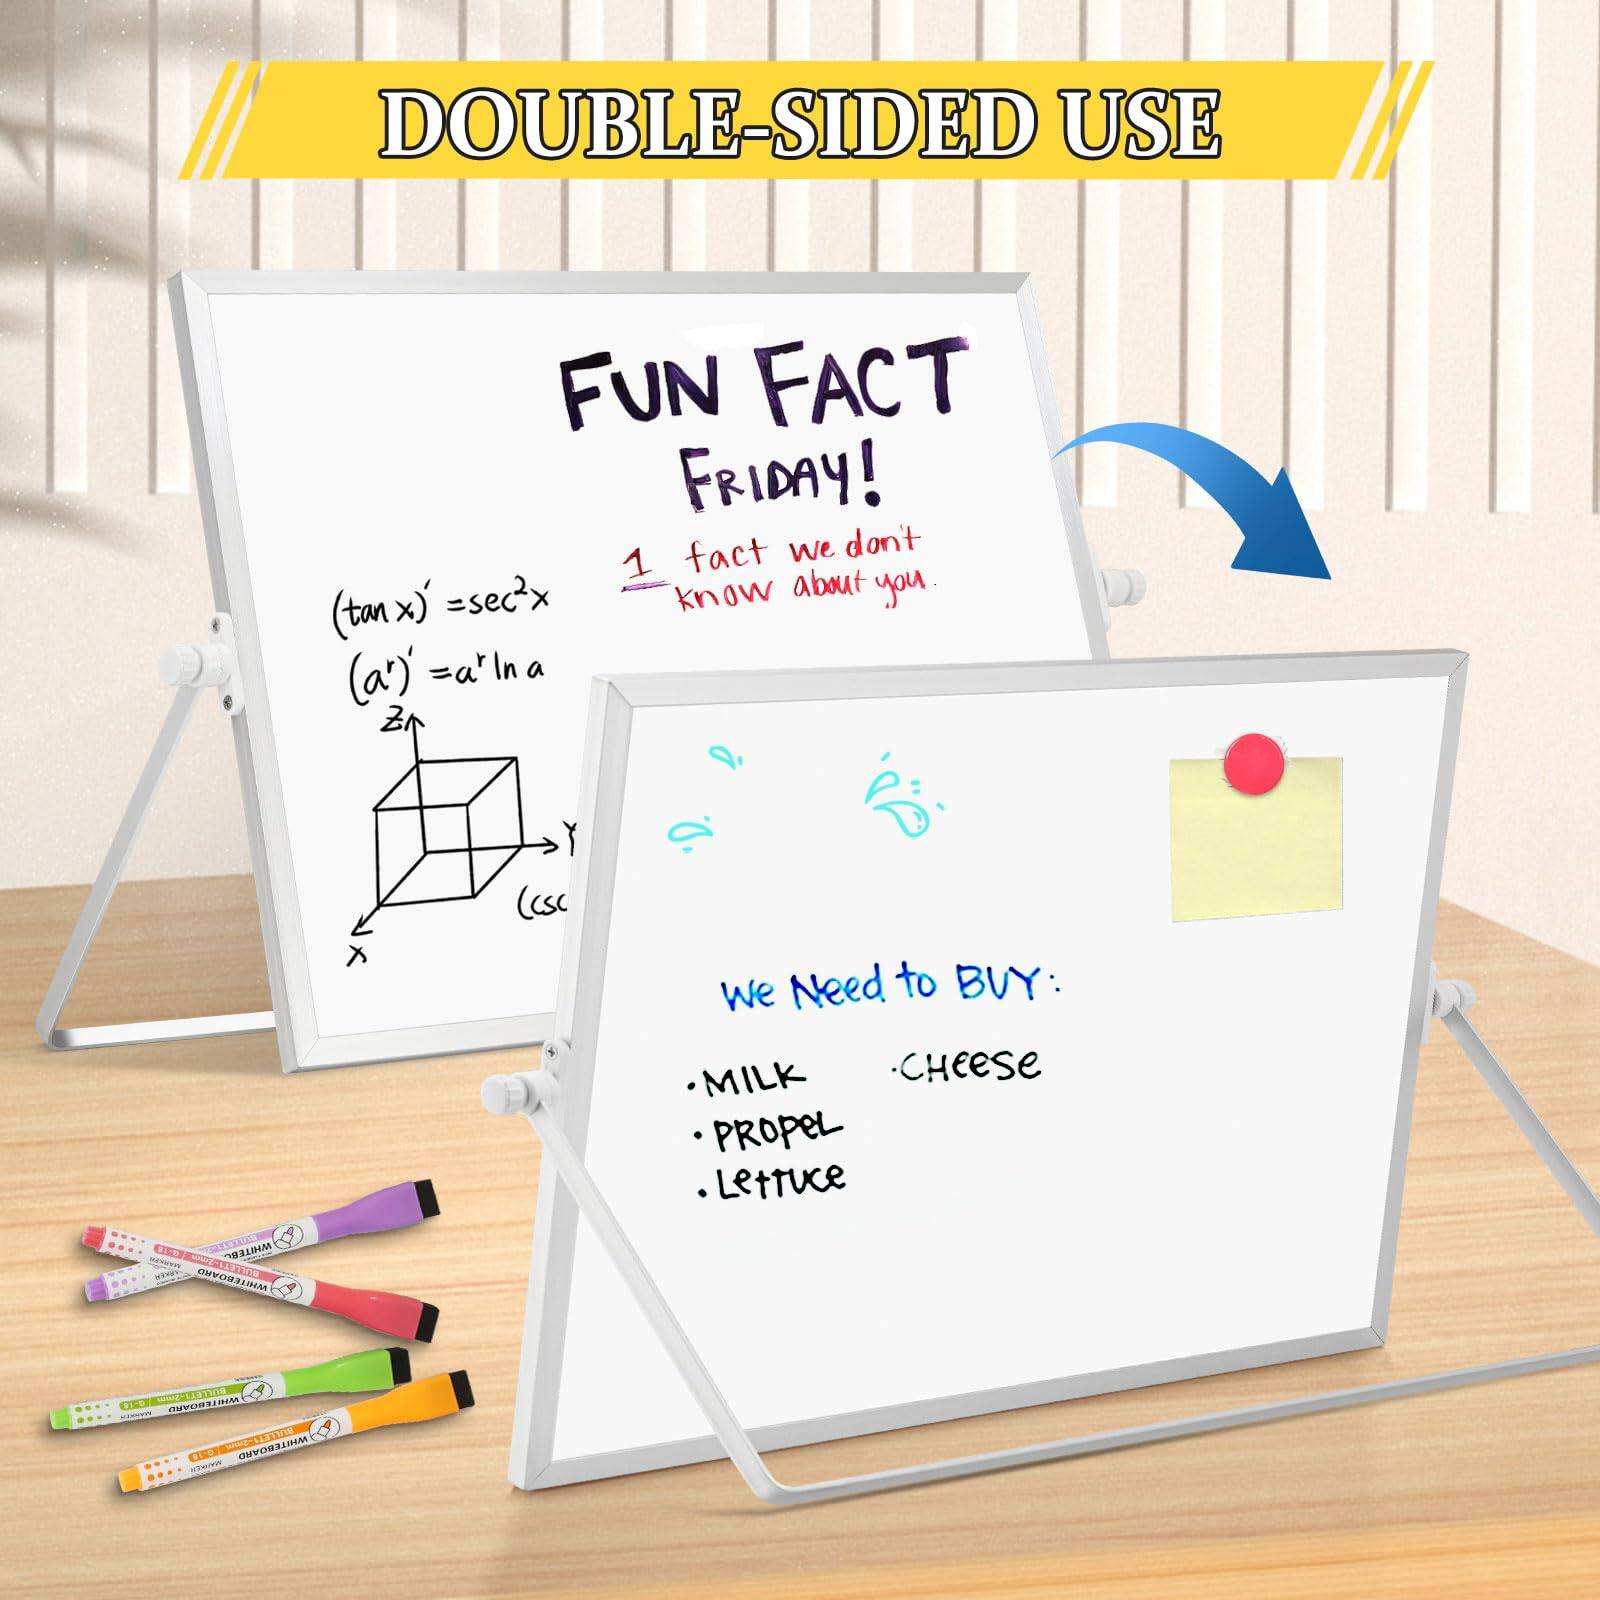 DOUBLE-SIDED USE
FUN FACT
FRIDAY!
1 fact we don't
know about you.
(tan x)' = sec²x
(aʳ)' = aʳ ln a
Z
Y
(csc
X
We Need to BUY:
·MILK ·CHEESE
·PROPEL
·LETTUCE
BULLET1-2mm
WHITEBOARD
G-18 | BULLET1-2mm
WHITEBOARD
MARKER
G-18 | BULLET1-2mm
WHITEBOARD
MARKER
G-18 | BULLET1-2mm
WHITEBOARD
MARKER